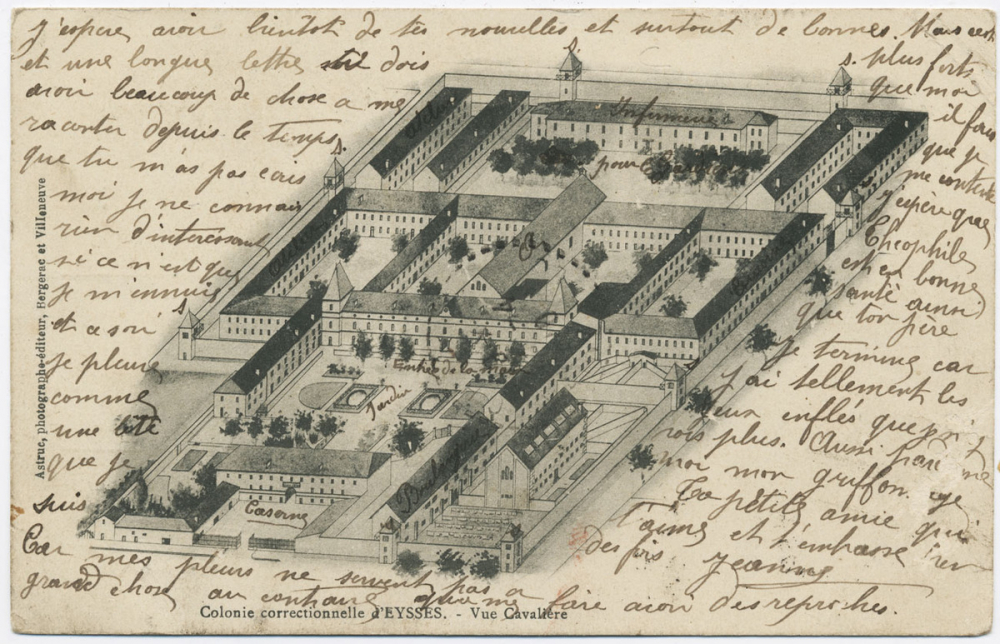 J'espere avoir bientot de tes nouvelles et surtout de bonnes. Mais c'est
et une longue lettre tu dois
avoir beaucoup de chose a me
raconter depuis le temps
que tu m'as pas ecris
moi je ne connais
rien d'interessant
si ce n'est que
je m'ennuis
et ce soir
je pleure
comme
une bête
que je
suis
Car mes pleurs ne servent pas a
grand chose au contraire qu'a me faire avoir des reproches.
plus fort
que moi
il faut
que je
me contente
J'espère que
Theophile
est en bonne
santé ainsi
que ton père
Je termine car
j'ai tellement les
yeux enflés que j'y
vois plus. Aussi
moi mon griffon.
Ta petite amie qui
t'aime et t'embrasse
des fois
Jeanne
S.
S.
S.
S.
Atelier
Infirmerie
pour
Atelier
Entrée de la
Jardin
Caserne
Astruc, photographe-éditeur, Bergerac et Villeneuve
Colonie correctionnelle d'EYSSES. - Vue Cavalière